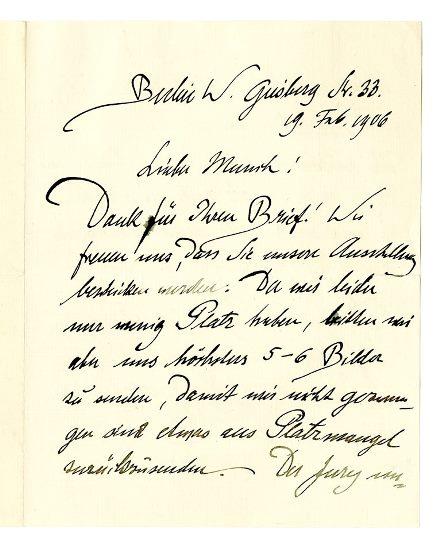 Berlin W. Geisberg Str. 33.
19. Feb. 1906
Lieber Munch!
Dank für Ihren Brief! Wir
freuen uns, dass Sie unsere Ausstellung
beschicken werden. Da wir leider
nur wenig Platz haben, bitten wir
aber uns höchstens 5-6 Bilder
zu senden, damit wir nicht gezwun-
gen sind etwas aus Platzmangel
zurückzusenden. Der Jury un-